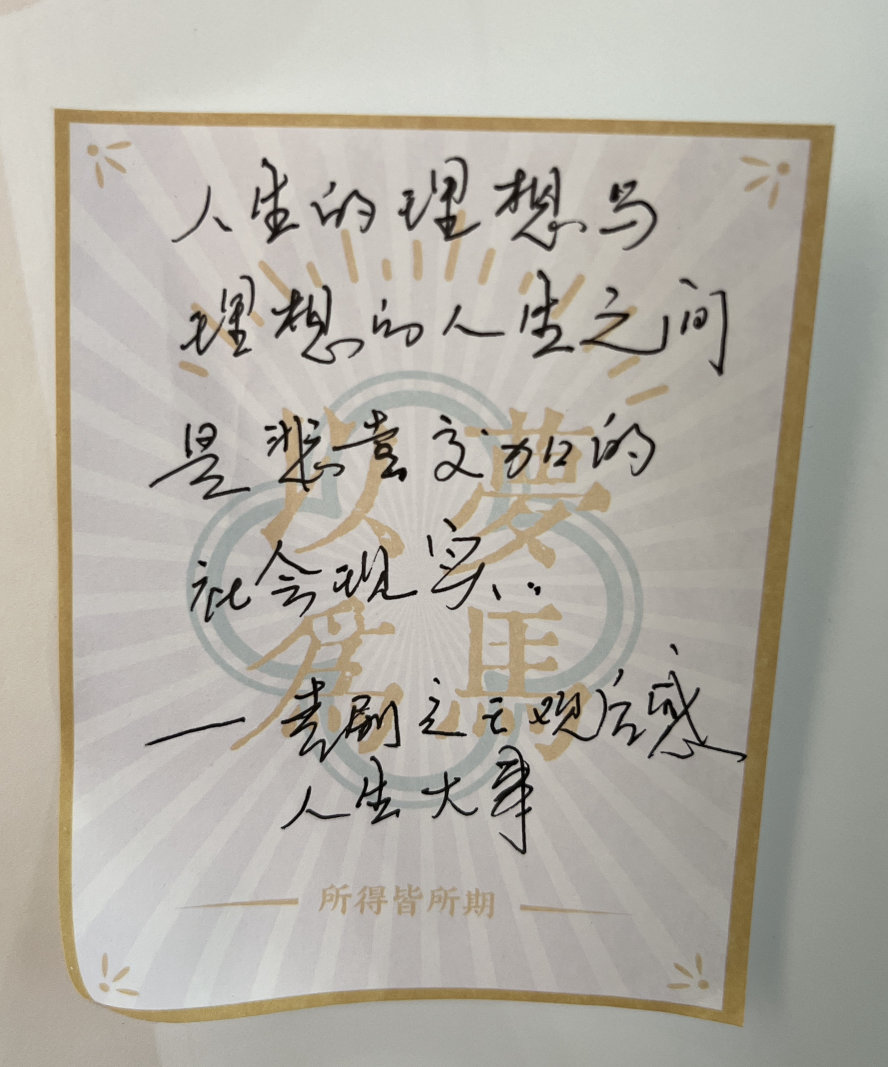 人生的理想与
理想的人生之间
是悲喜交加的
社会现实...
—喜剧之王观后感
人生大事
以夢
為馬
所得皆所期